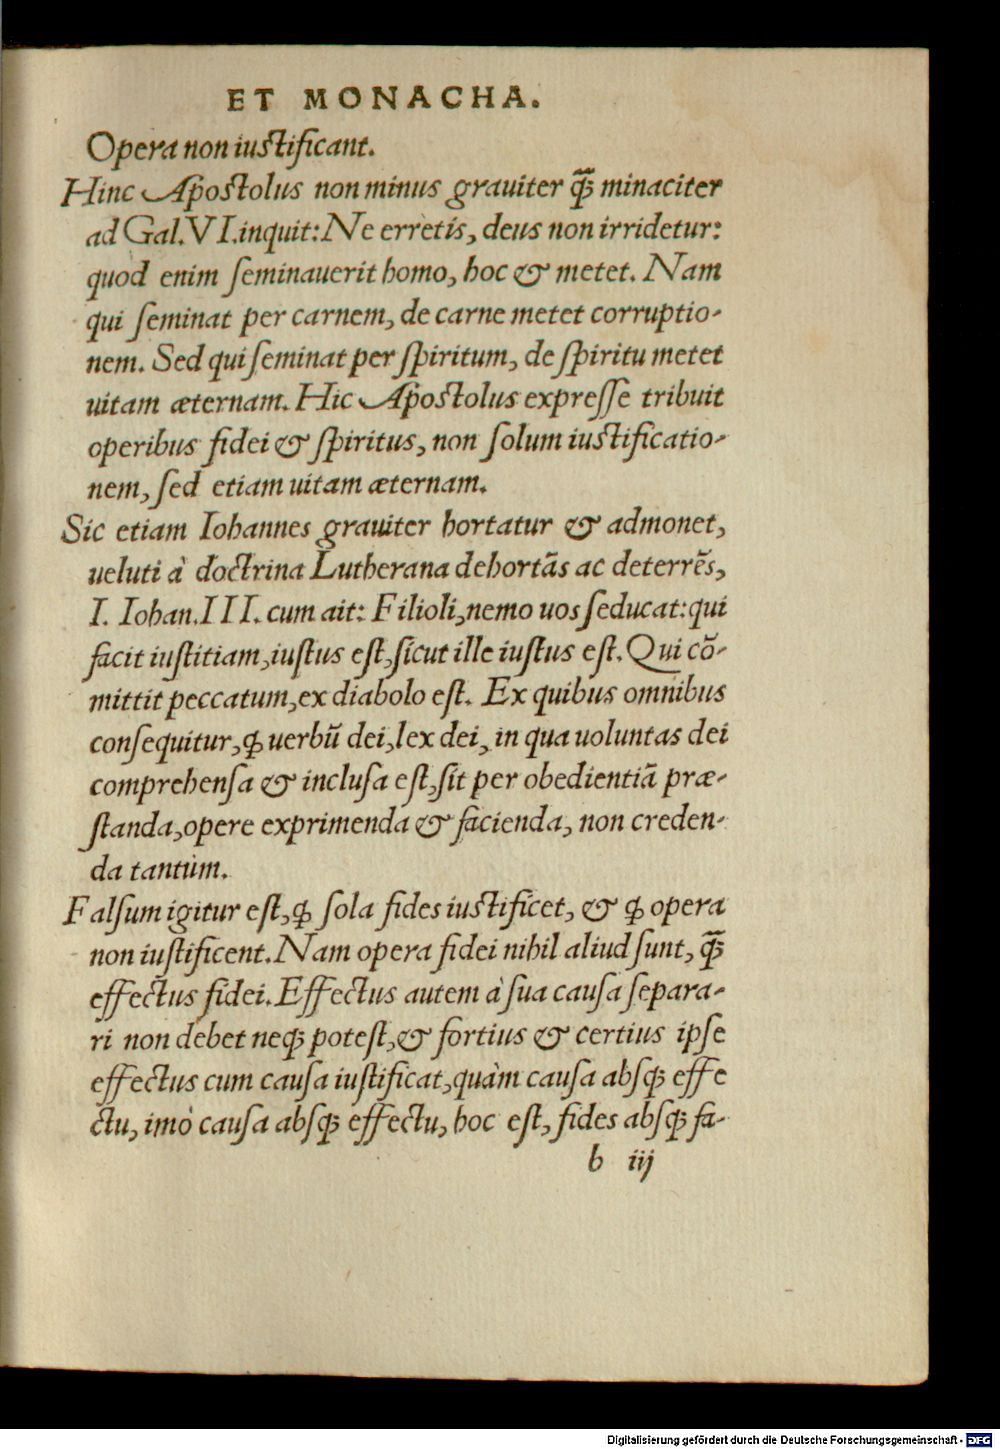 ET MONACHA.
Opera non iustificant.
Hinc Apostolus non minus grauiter q̃ꝫ minaciter
ad Gal. VI. inquit: Ne erretis, deus non irridetur:
quòd enim ſeminauerit homo, hoc & metet. Nam
qui ſeminat per carnem, de carne metet corruptio-
nem. Sed qui ſeminat per ſpiritum, de ſpiritu metet
uitam æternam. Hic Apostolus expreſſe tribuit
operibus fidei & ſpiritus, non ſolum iustificatio-
nem, ſed etiam uitam æternam.
Sic etiam Iohannes grauiter hortatur & admonet,
ueluti à doctrina Lutherana dehortãs ac deterrẽs,
I. Iohan. III. cum ait: Filioli, nemo uos ſeducat: qui
facit iuſtitiam, iuſtus eſt, ſicut ille iuſtus eſt. Qui cõ-
mittit peccatum, ex diabolo eſt. Ex quibus omnibus
conſequitur, ꝙ uerbũ dei, lex dei, in qua uoluntas dei
comprehenſa & incluſa eſt, ſit per obedientiã præ-
ſtanda, opere exprimenda & facienda, non creden-
da tantùm.
Falſum igitur eſt, ꝙ ſola fides iustificet, & ꝙ opera
non iuſtificent. Nam opera fidei nihil aliud ſunt, q̃ꝫ
effectus fidei. Effectus autem à ſua cauſa ſepara-
ri non debet neqꝫ poteſt, & fortius & certius ipſe
effectus cum cauſa iuſtificat, quàm cauſa abſqꝫ effe
ctu, imò cauſa abſqꝫ effectu, hoc eſt, fides abſqꝫ fa-
b iij
Digitalisierung gefördert durch die Deutsche Forschungsgemeinschaft - DFG